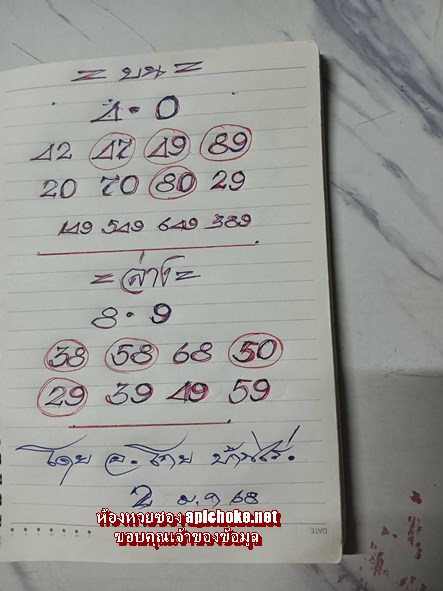 = บน =
4 · 0
42 47 49 89
20 70 80 29
149 549 649 389
= ล่าง =
8 · 9
38 58 68 50
29 39 49 59
โดย อ. ไทย บ้านไร่.
2 ม.ค 68
ห้องหวยซอง apichoke.net
ขอบคุณเจ้าของข้อมูล
DATE